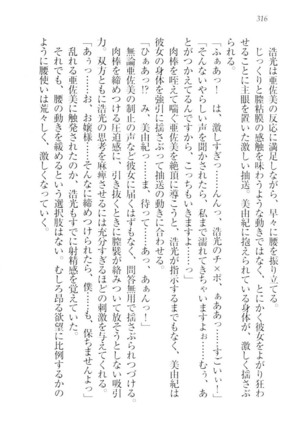 316
浩光は亜佐美の反応に満足しながら、早々に腰を振り立てる。
じっくりと膣粘膜の感触を味わうような動きではない、とにかく彼女をよがり狂わ
せることに主眼を置いた激しい抽送。美由紀に抱えられている身体が、激しく揺さぶ
られる。
「ふぁあっ！　は、激しすぎっ…んんっ、浩光のチ×ポ、ぁああっ……すごいぃっ！」
「そんないやらしい声を聞かされたら、私まで濡れてきちゃいますよぉ……むぅ、あ
とがつかえてるんですから、こっちもいきますよ……っ」
肉棒を咥えて喘ぐ亜佐美を絶頂に導こうと、浩光が指示するまでもなく、美由紀は
彼女の身体を強引に揺さぶって抽送の動きに合わせる。
「ひぁあっ!?　み、美由紀っ…ま、待って…あ、あぁんっ！」
無論亜佐美の制止の声など彼女に届くはずもなく、問答無用で揺さぶられつづける。
肉棒を締めつける圧迫感に、引き抜くときに膣襞が絡みついて放そうとしない吸引
力。双方ともに浩光の思考を麻痺させるには充分すぎるほどの刺激を与えてくれる。
「あぅっ……お、お嬢様……そんなに締めつけられたら、僕……も、保ちませんよっ」
乱れる亜佐美に当てられ、浩光もすでに射精感を覚えていた。
それでも、腰の動きを緩めるという選択肢はない。むしろ昂る欲望に比例するかの
ように腰使いは荒々しく、激しくなっていく。